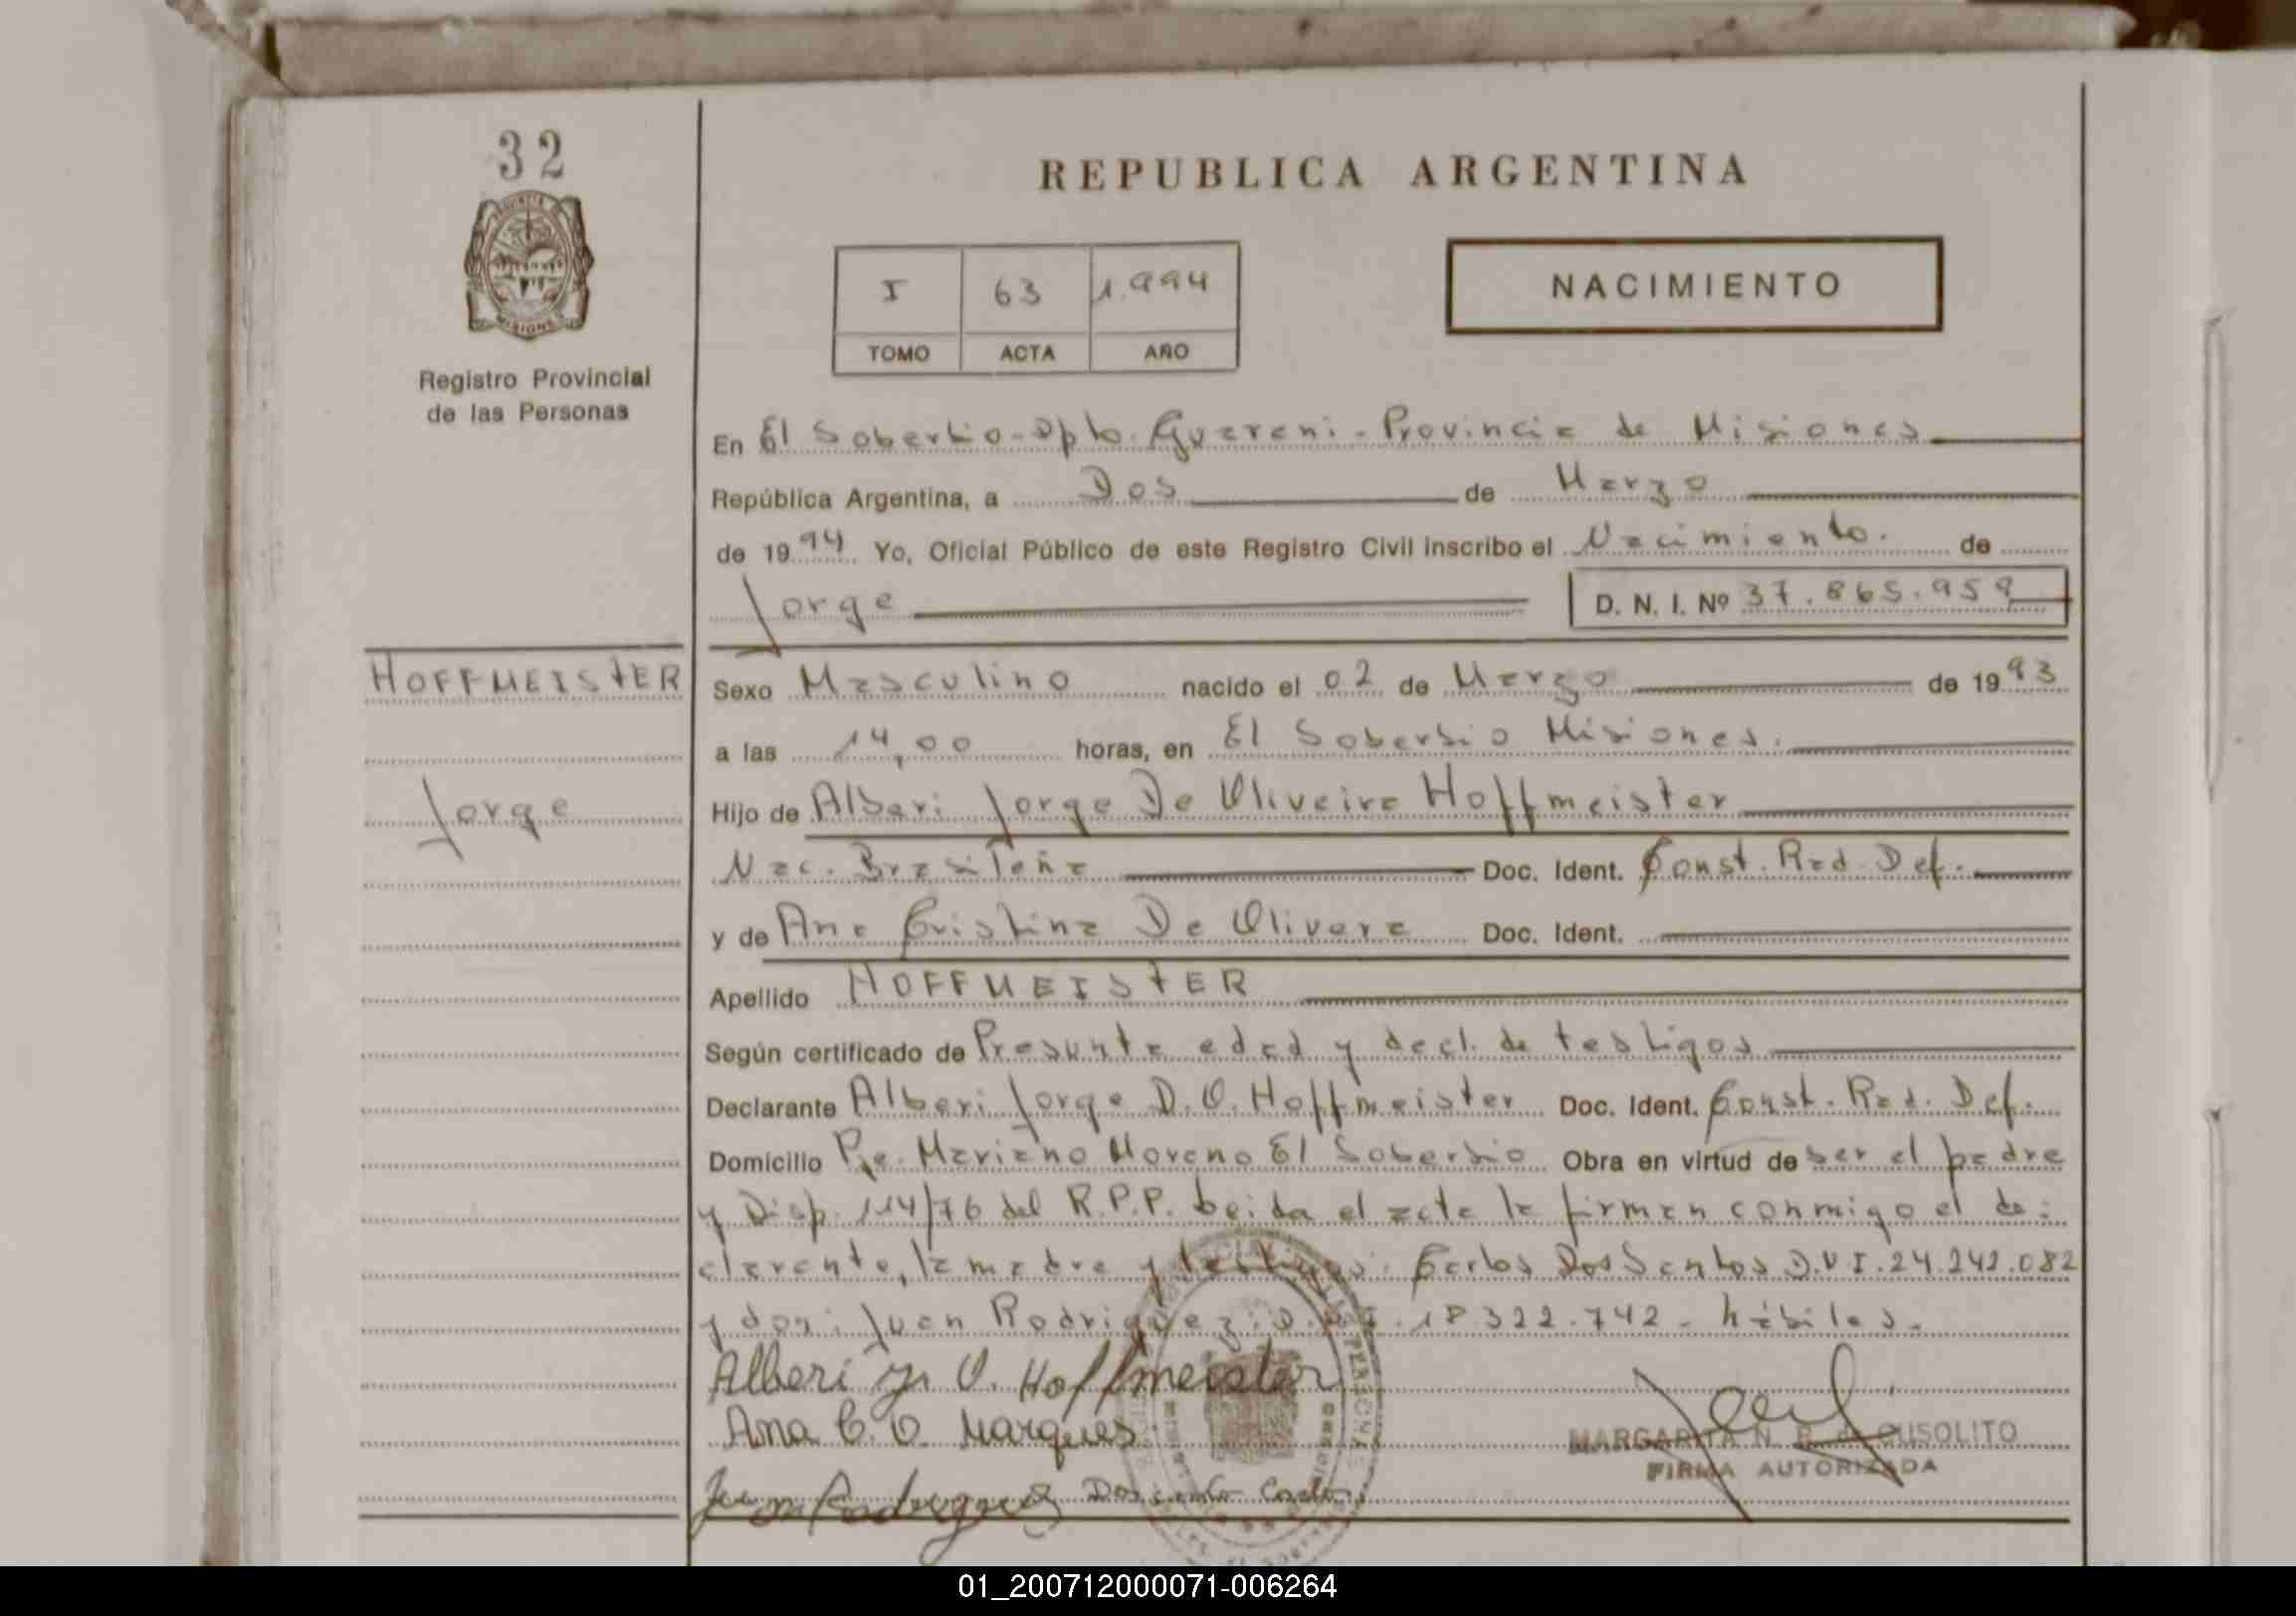 32
PROVINCIA DE
MISIONES
Registro Provincial
de las Personas
REPUBLICA ARGENTINA
I 63 1.994
TOMO ACTA AÑO
NACIMIENTO
En El Soberbio-Dpto. Guarani-Provincia de Misiones
República Argentina, a Dos de Marzo
de 1994 Yo, Oficial Público de este Registro Civil inscribo el Nacimiento. de
Jorge D. N. I. Nº 37.865.959
HOFFMEISTER
Sexo Masculino nacido el 02 de Marzo de 1993
a las 14,00 horas, en El Soberbio Misiones.
Jorge
Hijo de Alberi Jorge De Oliveira Hoffmeister
Nac. Brasileña Doc. Ident. Const. Rad. Def.
y de Ana Cristina De Olivera Doc. Ident.
Apellido HOFFMEISTER
Según certificado de Presunta edad y decl. de testigos
Declarante Alberi Jorge D.O. Hoffmeister Doc. Ident. Const. Rad. Def.
Domicilio Pje. Mariano Moreno El Soberbio Obra en virtud de ser el padre
y Disp. 114/76 del R.P.P. Leida el acta la firman conmigo el de:
clarante, la madre y testigos: Carlos Dos Santos D.N.I. 24.242.082
y don: Juan Rodriguez: D.N.I. 18.322.742 - hábiles.
Alberi J. O. Hoffmeister
Ana C. O. Marques
MARGARITA N. CUSOLITO
FIRMA AUTORIZADA
Juan Rodriguez Dos Santos Carlos
01_200712000071-006264